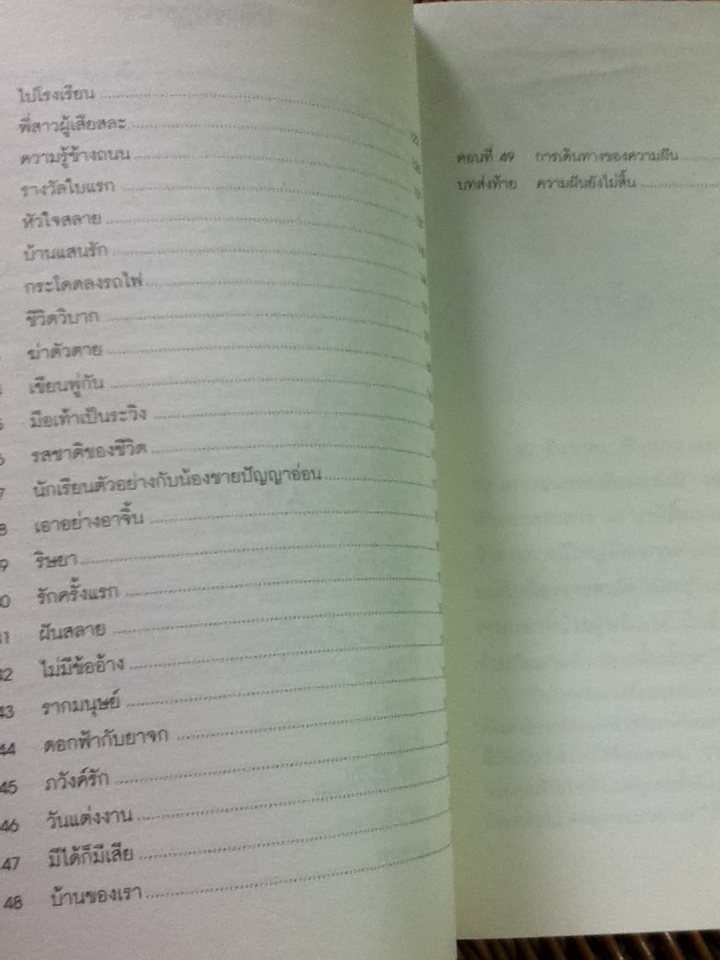 ไปโรงเรียน
พี่สาวผู้เสียสละ
ความรู้ข้างถนน
รางวัลใบแรก
หัวใจสลาย
บ้านแสนรัก
กระโดดลงรถไฟ
ชีวิตวิบาก
ฆ่าตัวตาย
เซียนพู่กัน
มือเท้าเป็นระวิง
รสชาติของชีวิต
นักเรียนตัวอย่างกับน้องชายปัญญาอ่อน
เอาอย่างอาจิ้น
ริษยา
รักครั้งแรก
ฝันสลาย
42 ไม่มีข้ออ้าง
43 รากมนุษย์
44 ดอกฟ้ากับยาจก
45 ภวังค์รัก
46 วันแต่งงาน
47 มีได้ก็มีเสีย
48 บ้านของเรา
ตอนที่ 49 การเดินทางของความฝัน
บทส่งท้าย ความฝันยังไม่สิ้น